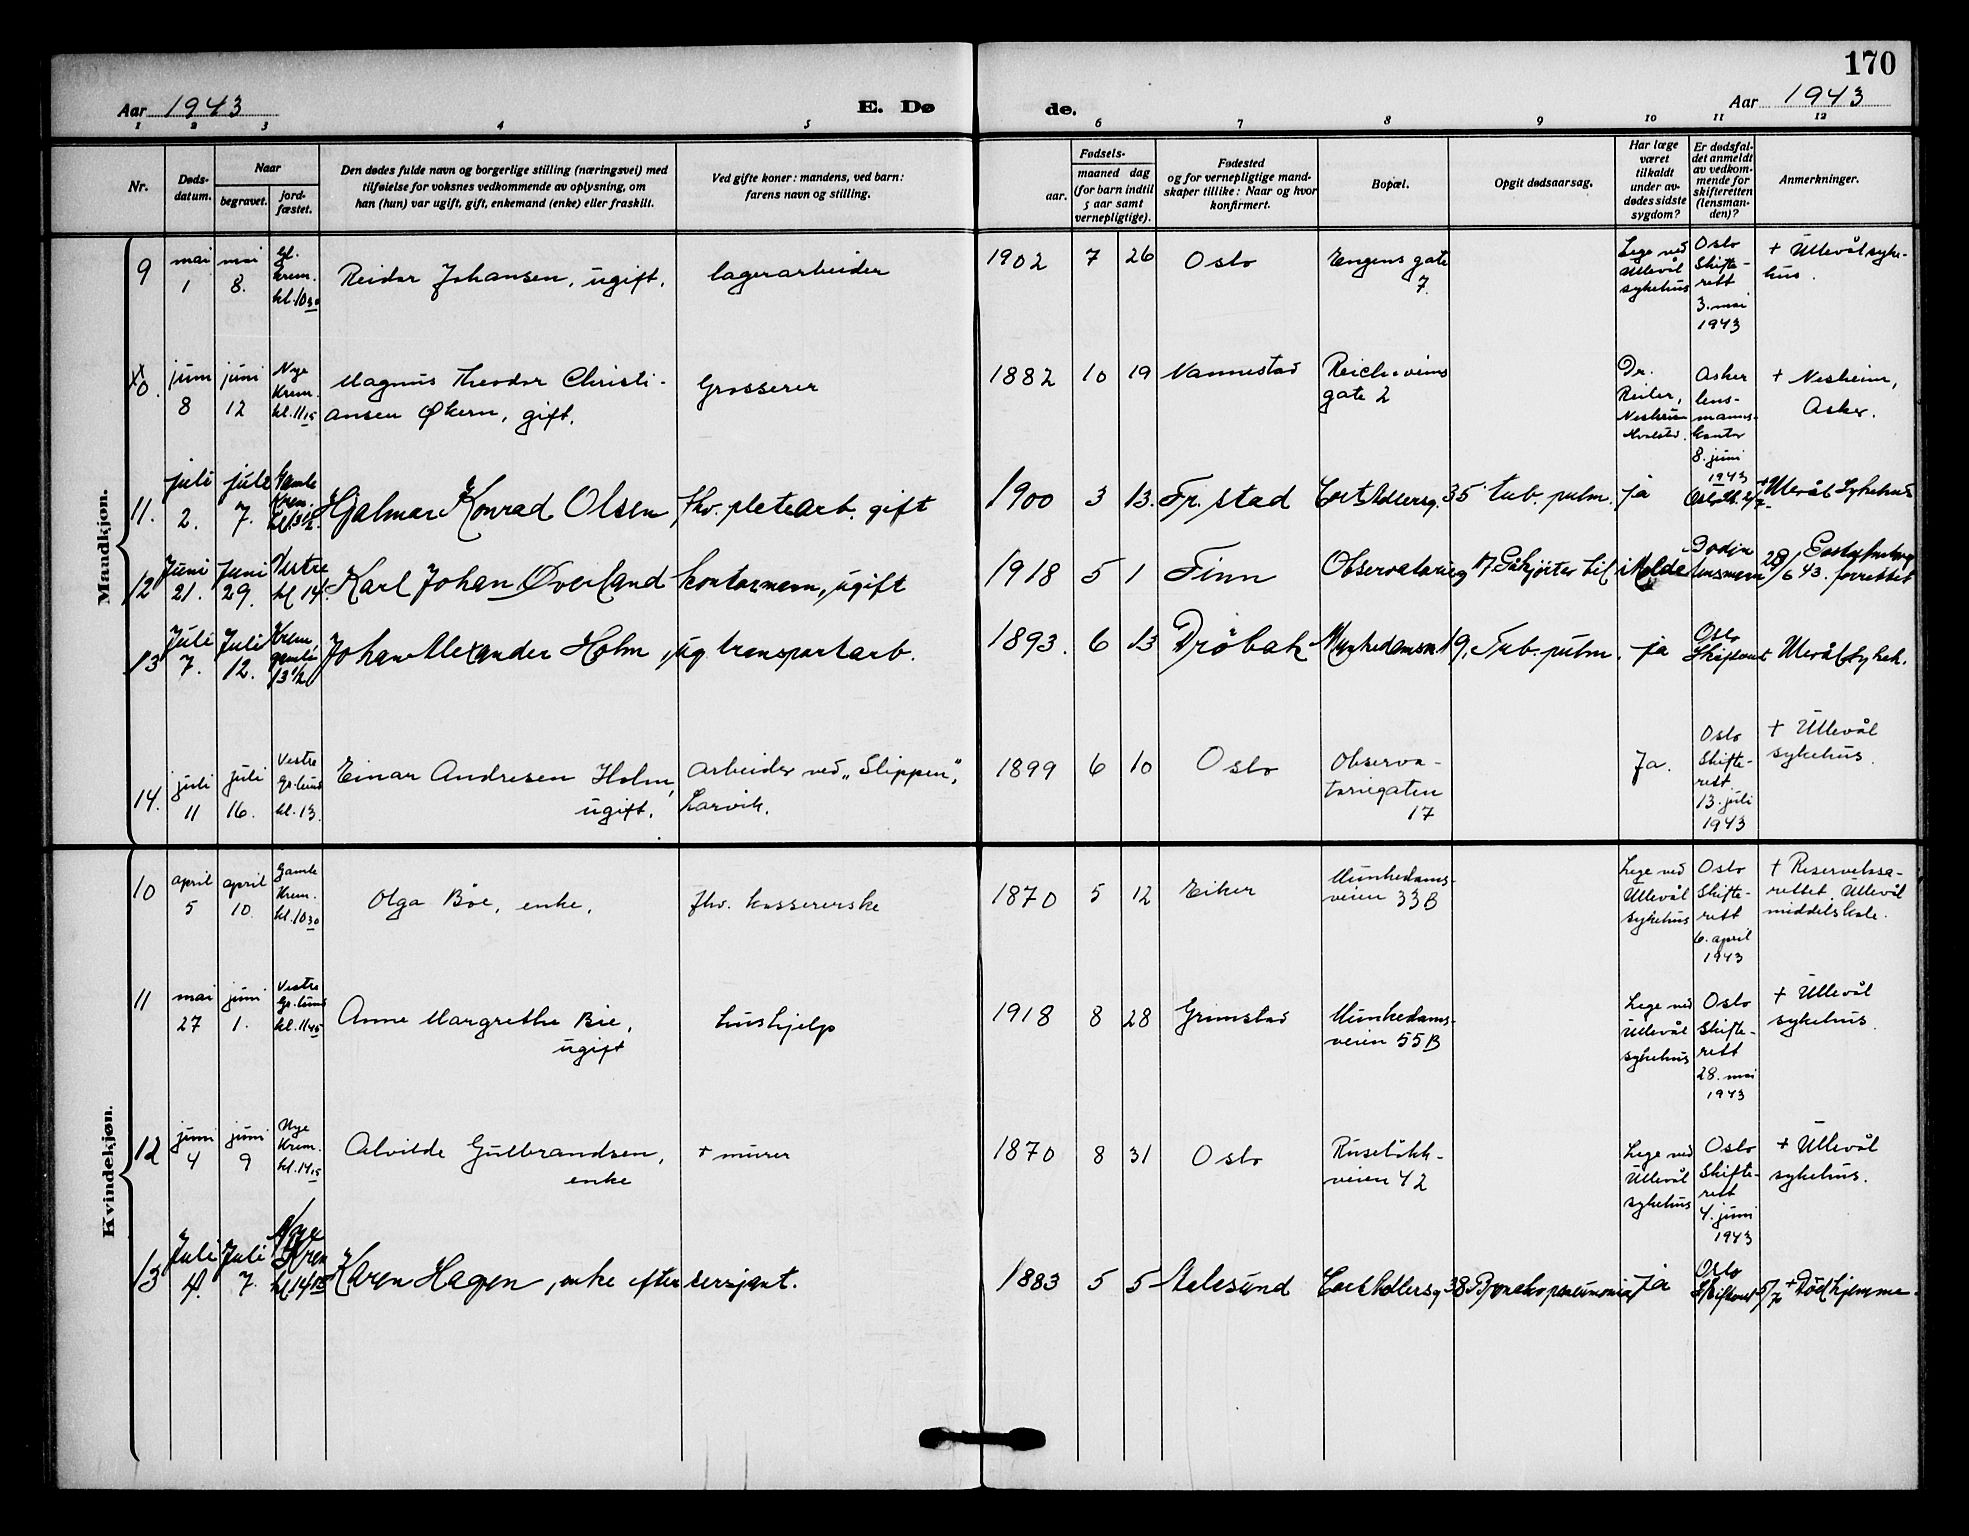 170
Aar 1943
E. Dø
de.
Aar 1943
1 2 3 4 5 6 7 8 9 10 11 12
Nr.
Døds-
datum.
Naar
begravet.
jord-
fæstet.
Den dødes fulde navn og borgerlige stilling (næringsvei) med
tilføielse for voksnes vedkommende av oplysning, om
han (hun) var ugift, gift, enkemand (enke) eller fraskilt.
Ved gifte koner: mandens, ved barn:
farens navn og stilling.
Fødsels-
aar.
maaned dag
(for barn indtil
5 aar samt
vernepligtige).
Fødested
og for vernepligtige mand-
skaper tillike: Naar og hvor
konfirmert.
Bopæl.
Opgit dødsaarsag.
Har læge
været
tilkaldt
under av-
dødes sidste
sygdom?
Er dødsfal-
det anmeldt
av vedkom-
mende for
skifteretten
(lensman-
den)?
Anmerkninger.
Mandkjøn.
9
mai
1
mai
8.
Gl.
Krem.
kl. 10 30
Reidar Johansen, ugift.
lagerarbeider
1902 7 26
Oslo
Engens gate
7.
Lege ved
Ullevål
sykehus
Oslo
Skifte-
rett
3. mai
1943
+ Ullevål syke-
hus.
10.
juni
8
juni
12
Nye
Krem.
kl. 11 15
Magnus Theodor Christi-
ansen Økern, gift.
Grosserer
1882 10 19
Nannestad
Reichweins
gate 2
Dr.
Reiler,
Nesheim
Hvalstad.
Asker
lens-
manns-
kontor
8. juni
1943
+ Nesheim,
Asker.
11.
juli
2.
juli
7.
Gamle
Krem.
kl 13 1/2
Hjalmar Konrad Olsen
fhv. platearb. gift
1900 3 13.
Fr.stad
Cort Adlersg. 35
tub. pulm.
ja
+ Ullevål Sykehus
12
Juni
21.
Juni
29.
Vestre
kl 14.
Karl Johan Øverland
kontormann, ugift
1918 5 1
Finn
Observatorieg 17
i Molde
lensmenn
28/6 43. forrettet
13
Juli
7.
Juli
12.
Krem
gamle
13 1/2
Johan Alexander Holm
, ug. transportarb.
1893. 6 13
Drøbak
Munkedamsv. 19.
Tub. pulm.
ja
Oslo
Skifterett
Ullevål sykeh.
14.
juli
11
juli
16.
Vestre
Gr.lund
kl. 13.
Einar Andresen Holm,
ugift.
Arbeider ved "Slippen",
Larvik.
1899 6 10
Oslo
Observa-
toriegaten
17
Ja.
Oslo
Skifte-
rett
13. juli
1943
+ Ullevål
sykehus.
Kvindekjøn.
10
april
5
april
10.
Gamle
Krem.
kl. 10 30
Olga Bøe, enke.
fhv. kassererske
1870 5 12
Eiker
Munkedams-
veien 33B
Lege ved
Ullevål
sykehus
Oslo
Skifte-
rett
6. april
1943
+ Reservelasa-
rettet Ullevål
middelskole.
11
mai
27
juni
1.
Vestre
Gr.lund
kl. 11 45
Anne Margrethe Bie,
ugift
hushjelp
1918 8 28
Grimstad
Munkedams-
veien 55B
Lege ved
Ullevål
sykehus
Oslo
Skifte-
rett
28. mai
1943
+ Ullevål
sykehus.
12
juni
4
juni
9
Nye
Krem.
kl. 14 15
Alvilde Gulbrandsen,
enke
+ murer
1870 8 31
Oslo
Ruseløkk-
veien 42
Lege ved
Ullevål
sykehus
Oslo
Skifte-
rett
4. juni
1943
+ Ullevål
sykehus.
13
Juli
4.
Juli
7.
Nye
Krem
kl 14 15
Karen Hagen, enke efter
sersjant.
1883 5 5
Aalesund
Cort Adlersg 38
Bronkopneumoni
ja
Oslo
Skifterett 5/7
+ Død hjemme.